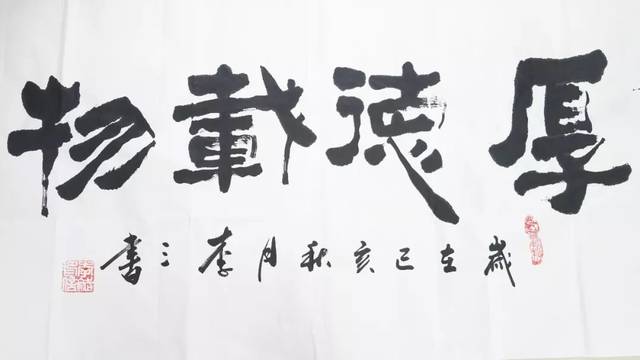 厚德載物
歲在己亥秋月李三書